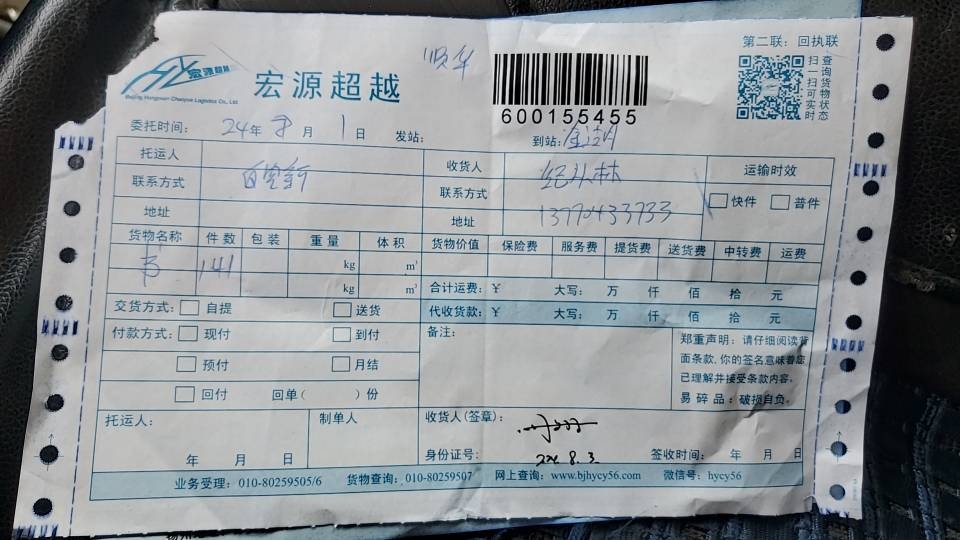 第二联：回执联
宏源超越
Beijing Hongyuan Chaoyue Logistics Co., Ltd
宏源超越
贤华
600155455
查询货物状态
扫一扫可实时
委托时间： 24年 8月 1日 发站： 到站：金湖
托运人 收货人 运输时效
联系方式 联系方式 快件 普件
地址 地址 13770433733
货物名称 件数 包装 重量 体积 货物价值 保险费 服务费 提货费 送货费 中转费 运费
书 141 kg m³
kg m³ 合计运费：￥ 大写： 万 仟 佰 拾 元
交货方式： 自提 送货 代收货款：￥ 大写： 万 仟 佰 拾 元
付款方式： 现付 到付 备注： 郑重声明：请仔细阅读背
面条款，你的签名意味着您
预付 月结 已理解并接受条款内容。
回付 回单（ ）份 易碎品：破损自负。
托运人： 制单人 收货人(签章)：
年 月 日 身份证号： 8.3. 签收时间： 年 月 日
业务受理：010-80259505/6 货物查询：010-80259507 网上查询：www.bjhycy56.com 微信号：hycy56